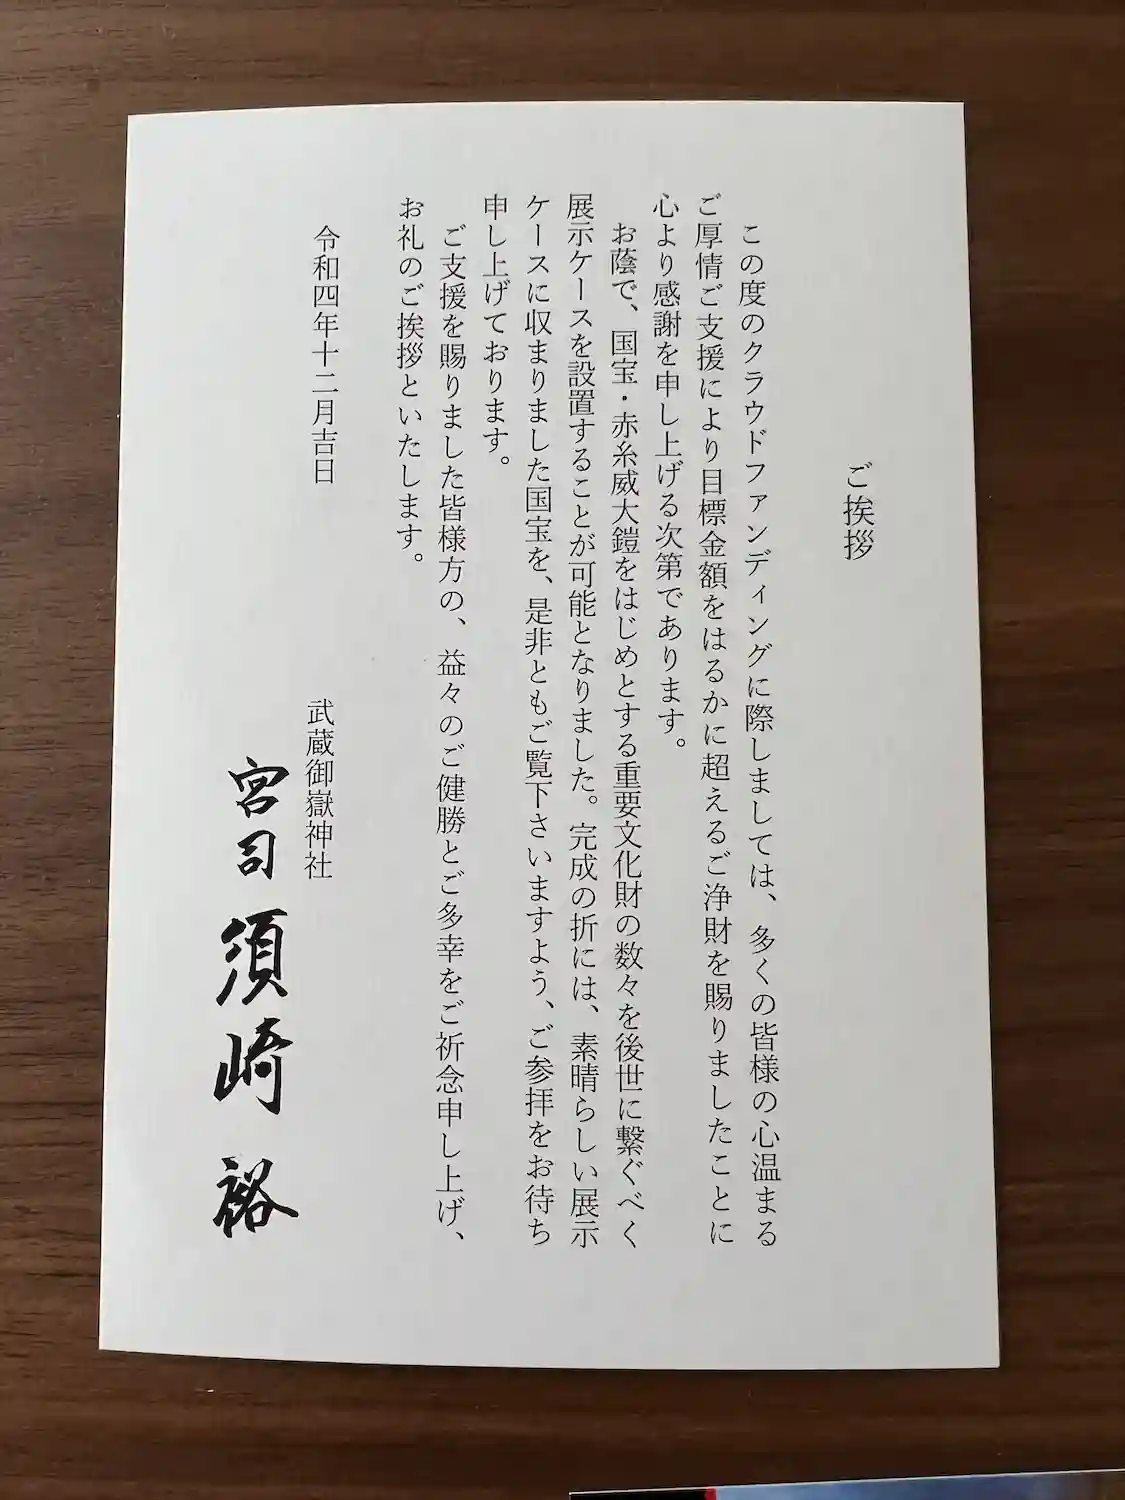 ご挨拶
この度のクラウドファンディングに際しましては、多くの皆様の心温まる
ご厚情ご支援により目標金額をはるかに超えるご浄財を賜りましたことに
心より感謝を申し上げる次第であります。
お蔭で、国宝・赤糸威大鎧をはじめとする重要文化財の数々を後世に繋ぐべく
展示ケースを設置することが可能となりました。完成の折には、素晴らしい展示
ケースに収まりました国宝を、是非ともご覧下さいますよう、ご参拝をお待ち
申し上げております。
ご支援を賜りました皆様方の、益々のご健勝とご多幸をご祈念申し上げ、
お礼のご挨拶といたします。
令和四年十二月吉日
武蔵御嶽神社
宮司 須崎 裕